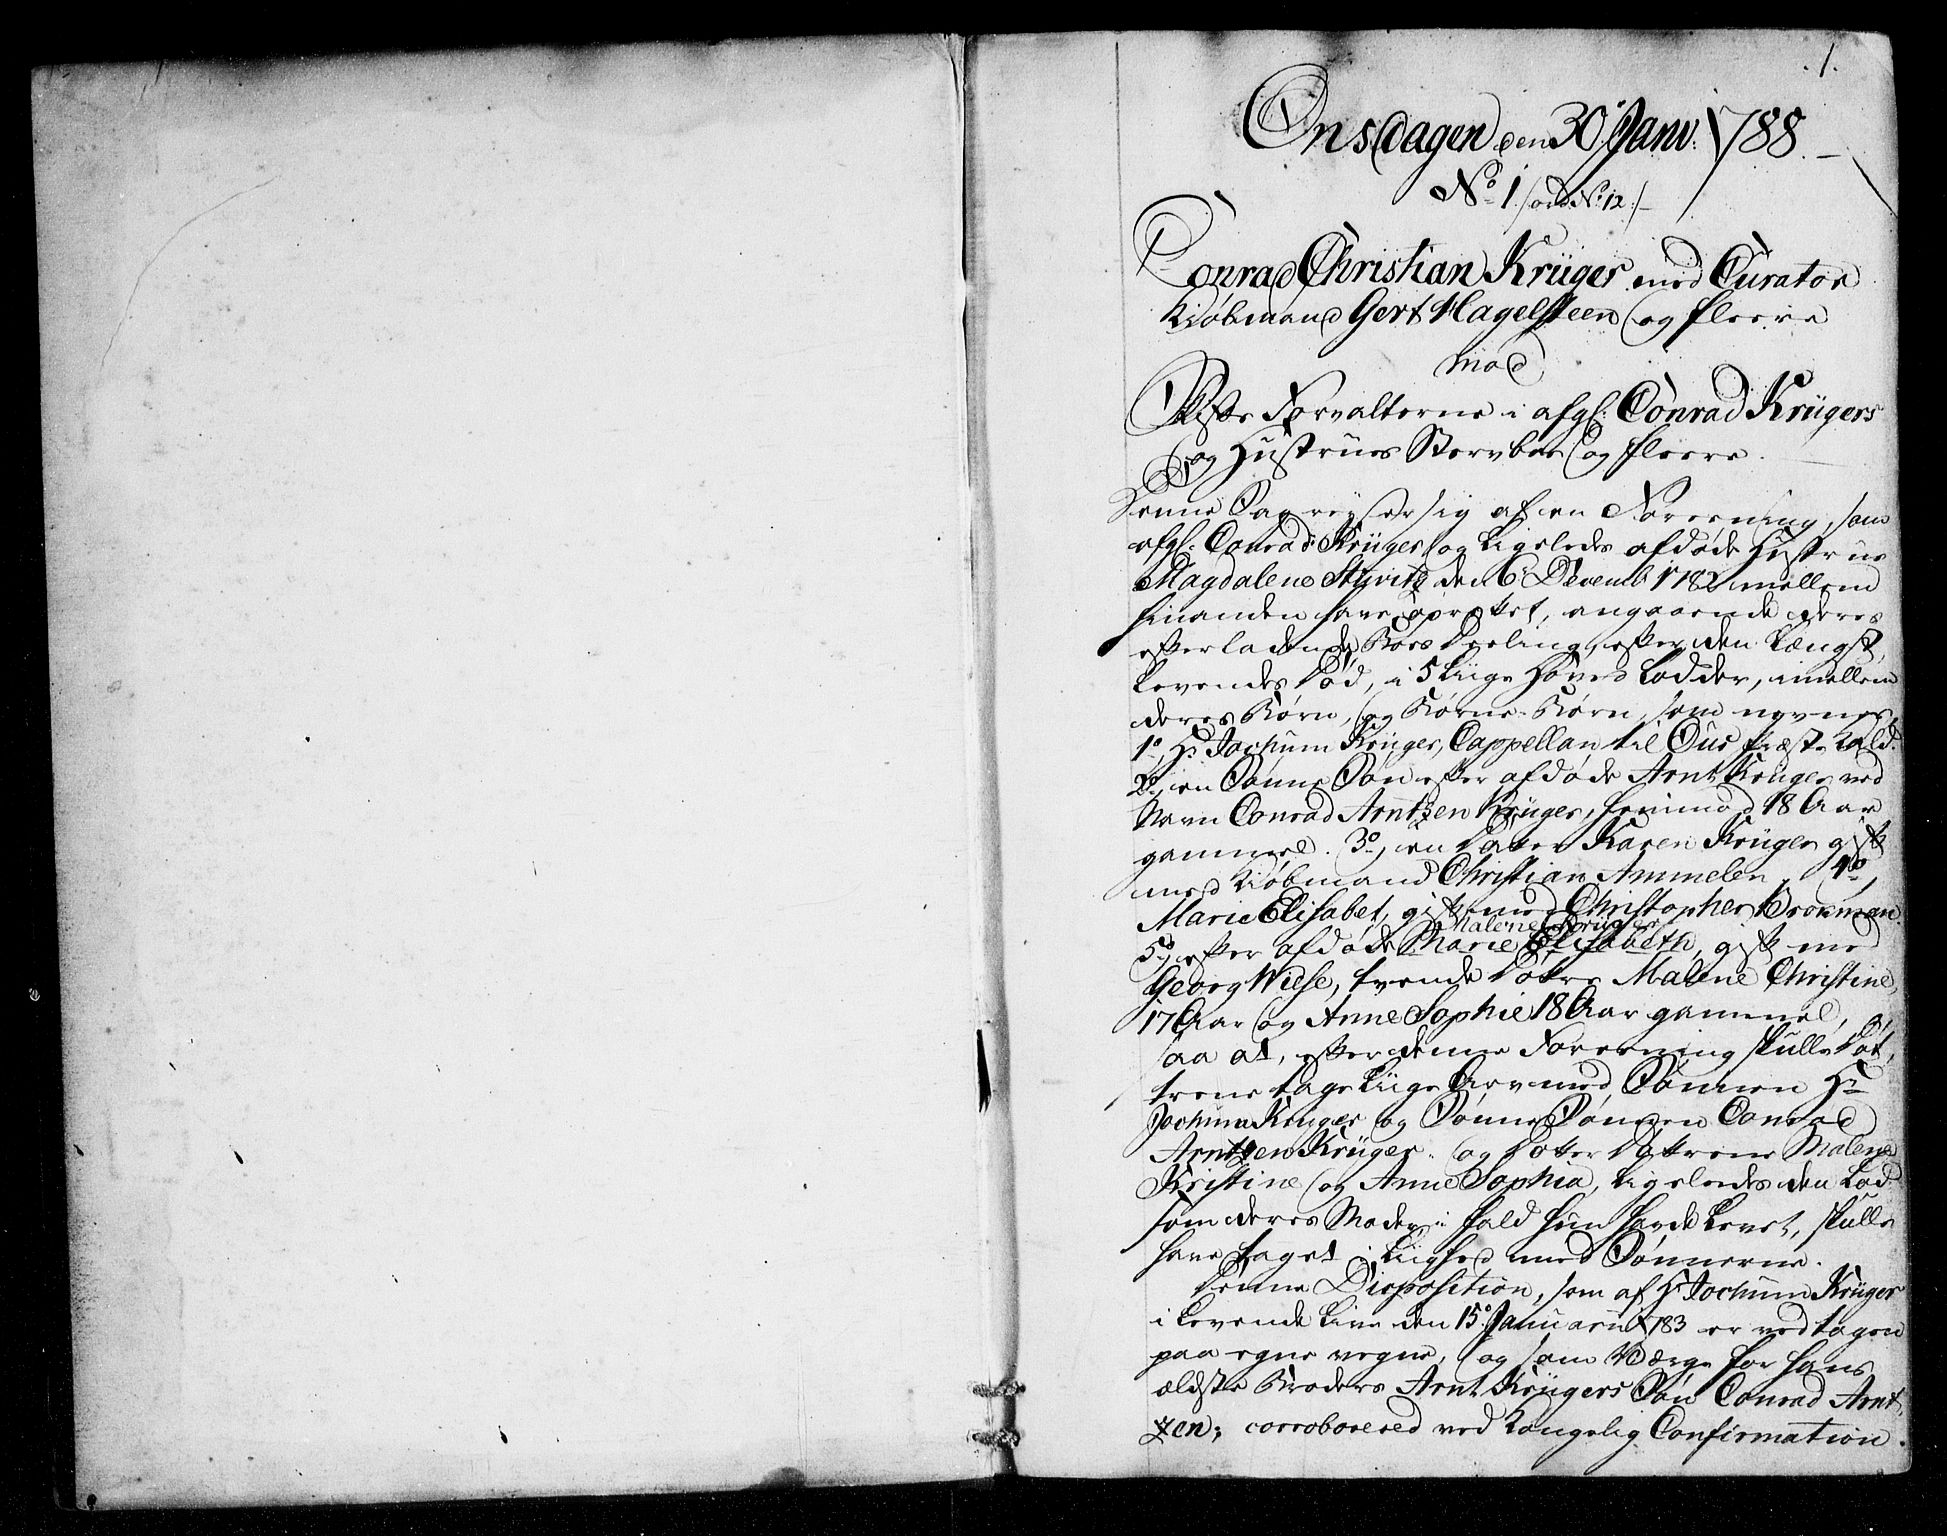 .1.
Onsdagen den 30 Janv: 1788.
No 1 /: ord No 12 :/
Conrad Christian Krüger med Curator
Kiøbmand Gert Hagelsteen og fleere
mod
Skifte Forvalterne i afgl: Conrad Krügers
og Hustrues Stervboe og fleere.
Denne Sag reyser sig af en Foreening, som
afgl: Conrad Krüger og ligeledes afdøde Hustrue
Magdalene Stüvitz den 6 Decemb 1782 mellem
hinanden have oprettet, angaaende deres
efterladende Boes Deeling, efter den Længst,
levendes Død, i 5 Liige Hoved Lodder, imellem
deres Børn, og Børne-Børn, som nevnes,
1o, Hr Jochum Krüger, Cappellan til Ous Præste Kald.
2o, en Sønne Søn efter afdøde Arnt Krüger ved
Navn Conrad Arntzen Krüger, henimod 18 Aar
gammel. 3o, en Dater Karen Krüger gift
med Kiøbmand Christian Ammelen, 4o,
Marie Elisabet, gift med Christopher Bronman
Malene Krüger
5o, efter afdøde Marie Elisabeth, gift med
Georg Wiese, tvende Døtre Malene Christine,
17 Aar og Anne Sophie 18 Aar gammel,
saa at, efter denne Foreening skulle Døt,
trene tage Liige Arv med Sønnen Hr
Jochum Krüger og Sønne Sønnen Conrad
Arntzen Krüger, og Dotter Døtrene Malene
Kristine og Anne Sophia, ligeledes den Lod
som deres Moder i fald hun havde levet, skulle
have taget i Liighed med Sønnerne.
Denne Disposition, som af Hr Jochum Krüger
i levende Live den 15 Januarii 1783 er vedtagen
paa egne vegne, og som Værge for hans
ældste Broders Arnt Krügers Søn Conrad Arnt,
zen; corroborered ved Kongelig Confirmation.